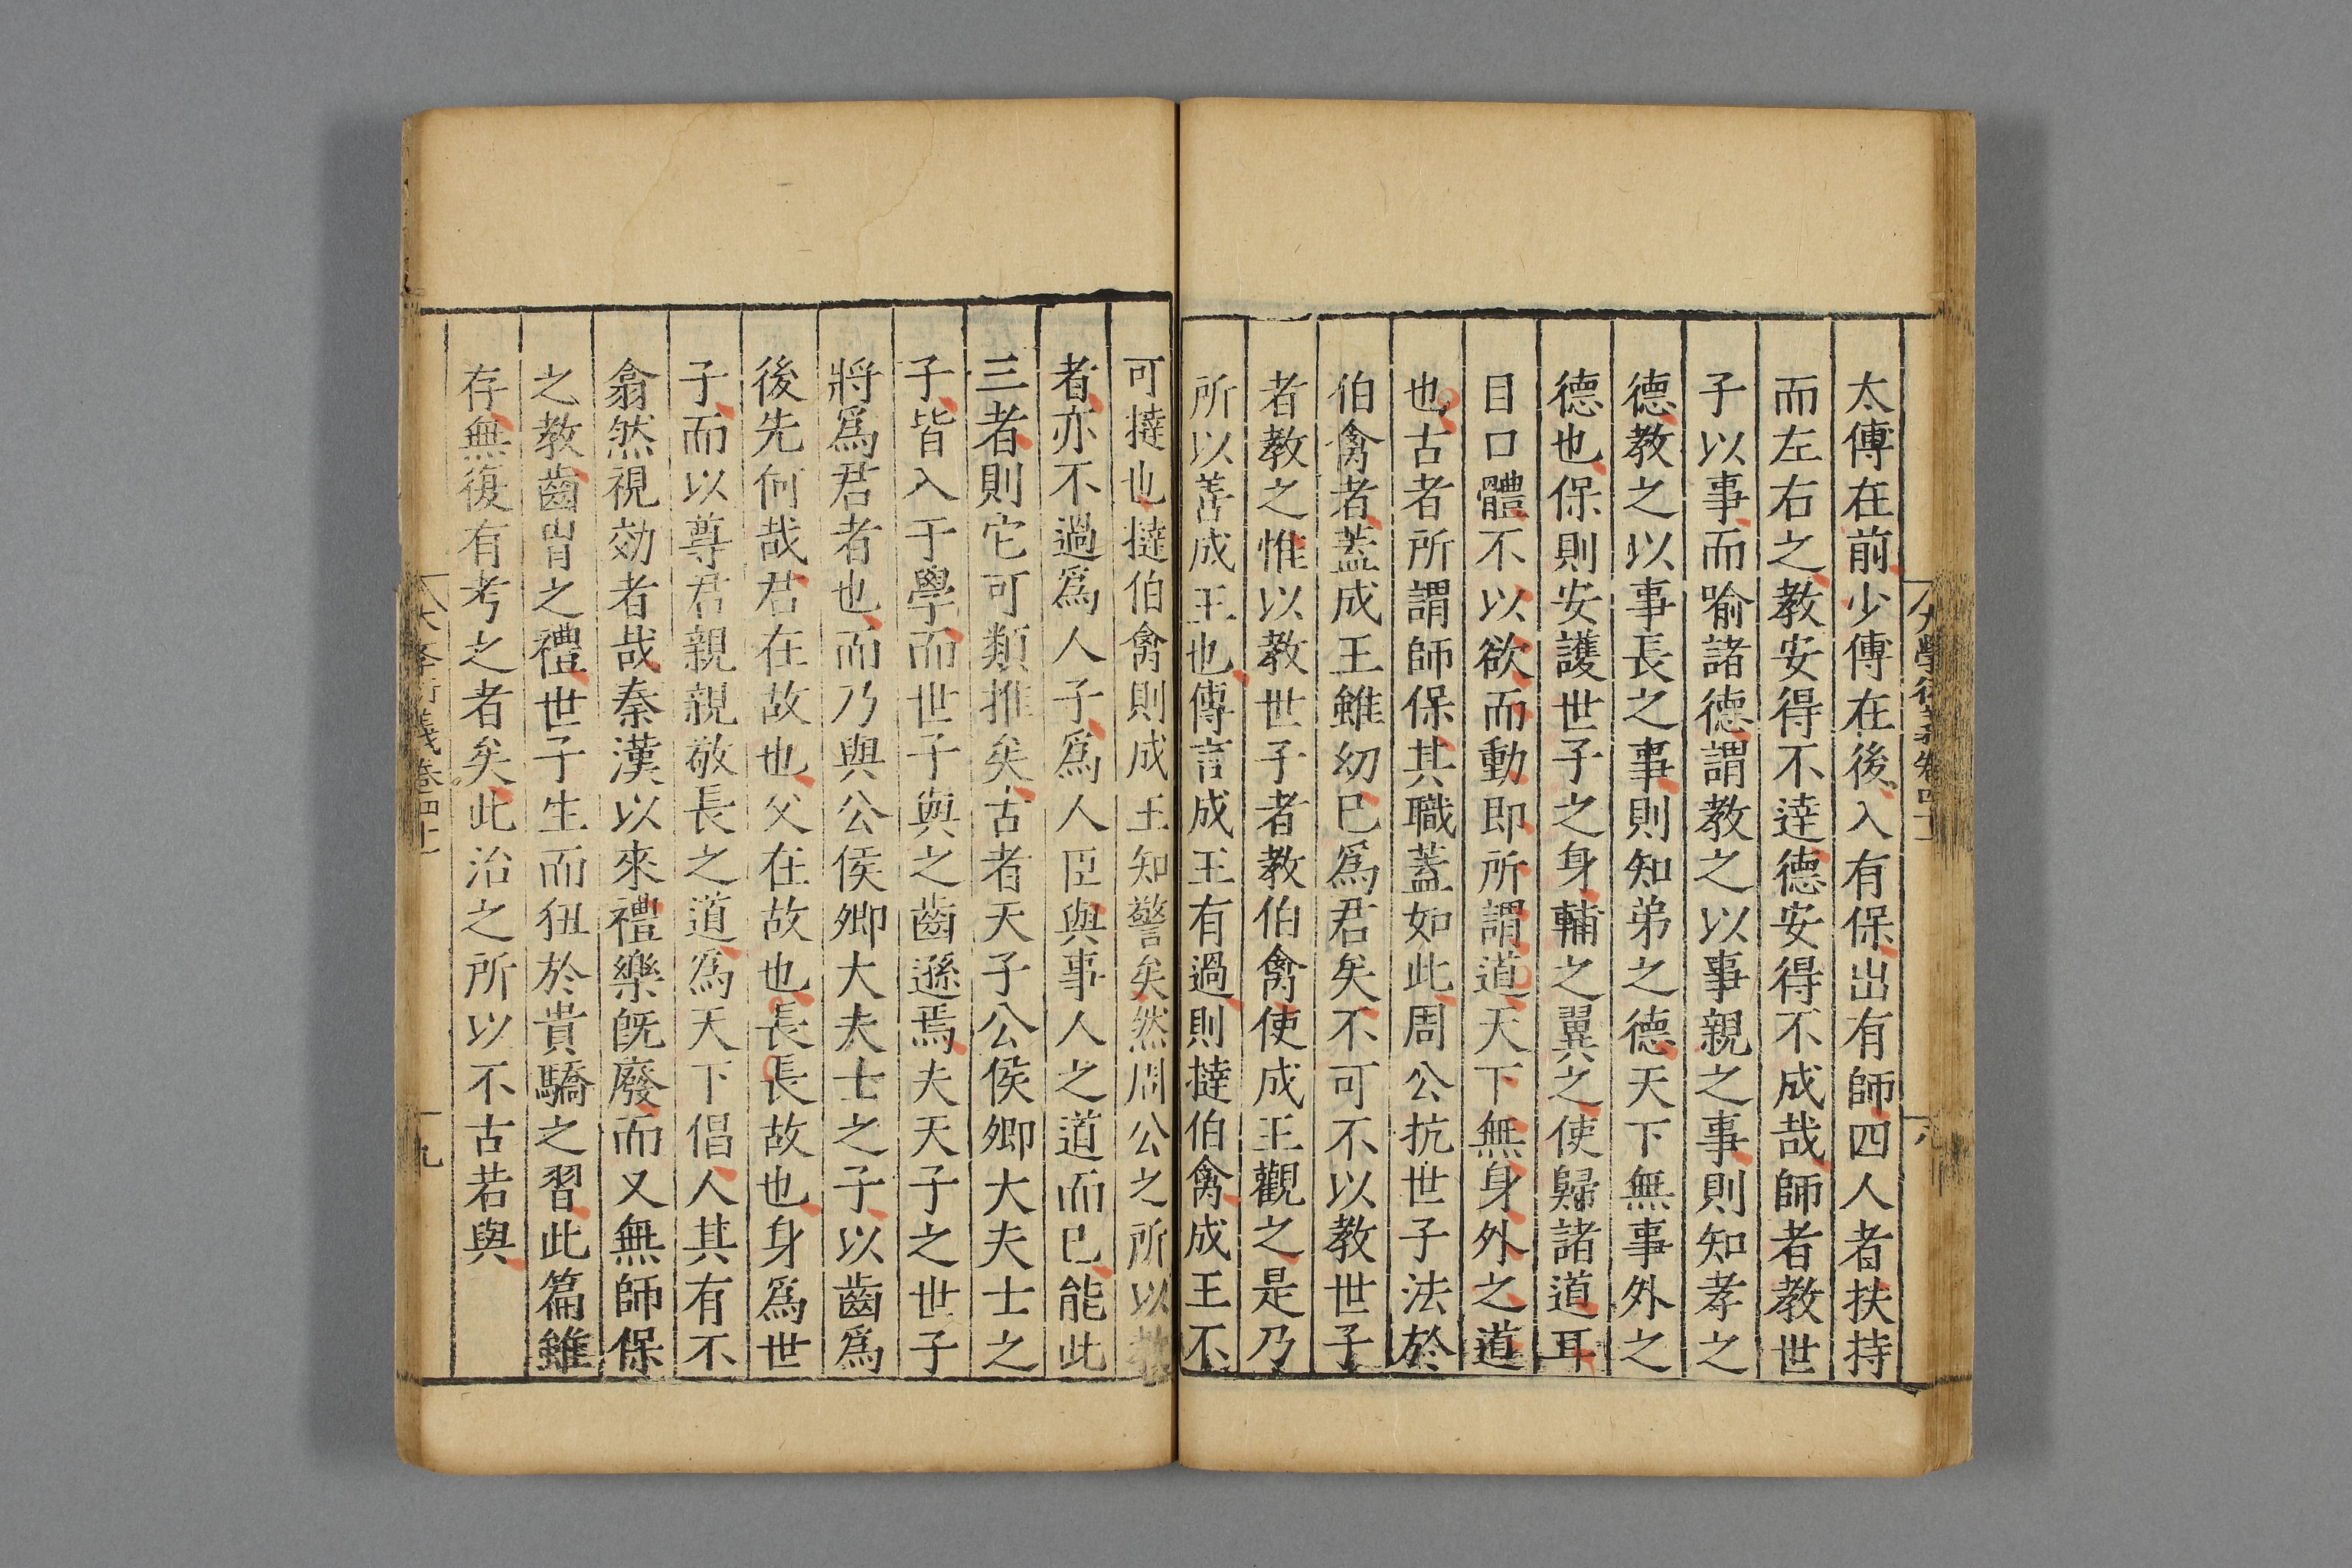 太傅在前少傅在後入有保出有師四人者扶持
而左右之教安得不達德安得不成哉師者教世
子以事而喻諸德謂教之以事親之事則知孝之
德教之以事長之事則知弟之德天下無事外之
德也保則安護世子之身輔之翼之使歸諸道耳
目口體不以欲而動即所謂道天下無身外之道
也古者所謂師保其職蓋如此周公抗世子法於
伯禽者蓋成王雖幼已爲君矣不可不以教世子
者教之惟以教世子者教伯禽使成王觀之是乃
所以善成王也傳言成王有過則撻伯禽成王不
可撻也撻伯禽則成王知警矣然周公之所以教
者亦不過爲人子爲人臣與事人之道而已能此
三者則它可類推矣古者天子公侯卿大夫士之
子皆入于學而世子與之齒遜焉夫天子之世子
將爲君者也而乃與公侯卿大夫士之子以齒爲
後先何哉君在故也父在故也長長故也身爲世
子而以尊君親親敬長之道爲天下倡人其有不
翕然視効者哉秦漢以來禮樂旣廢而又無師保
之教齒冑之禮世子生而狃於貴驕之習此篇雖
存無復有考之者矣此治之所以不古若與
大學衍義卷四十
九